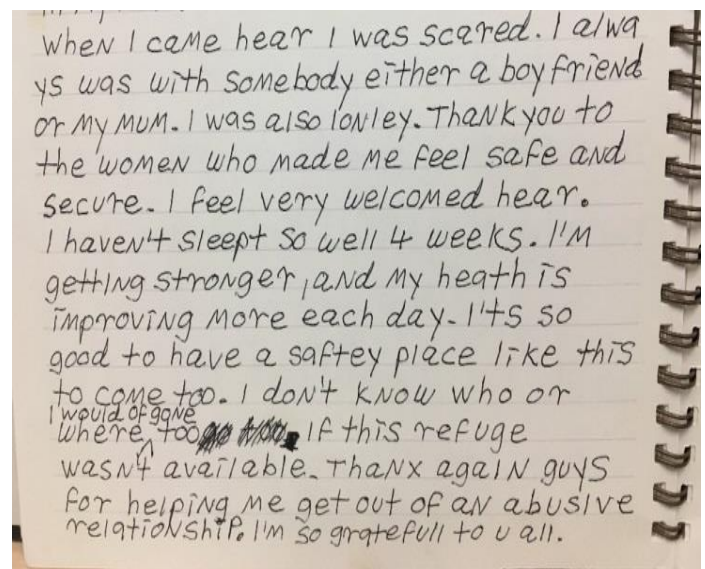 When I came hear I was scared. I alwa
ys was with somebody either a boyfriend
or my mum. I was also lonley. Thankyou to
the women who made me feel safe and
secure. I feel very welcomed hear.
I haven't sleept so well 4 weeks. I'm
getting stronger, and my heath is
improving more each day. I'ts so
good to have a saftey place like this
to come too. I don't know who or
I would of gone
where too. If this refuge
wasn't available. Thanx again guys
for helping me get out of an abusive
relationship. I'm so gratefull to u all.